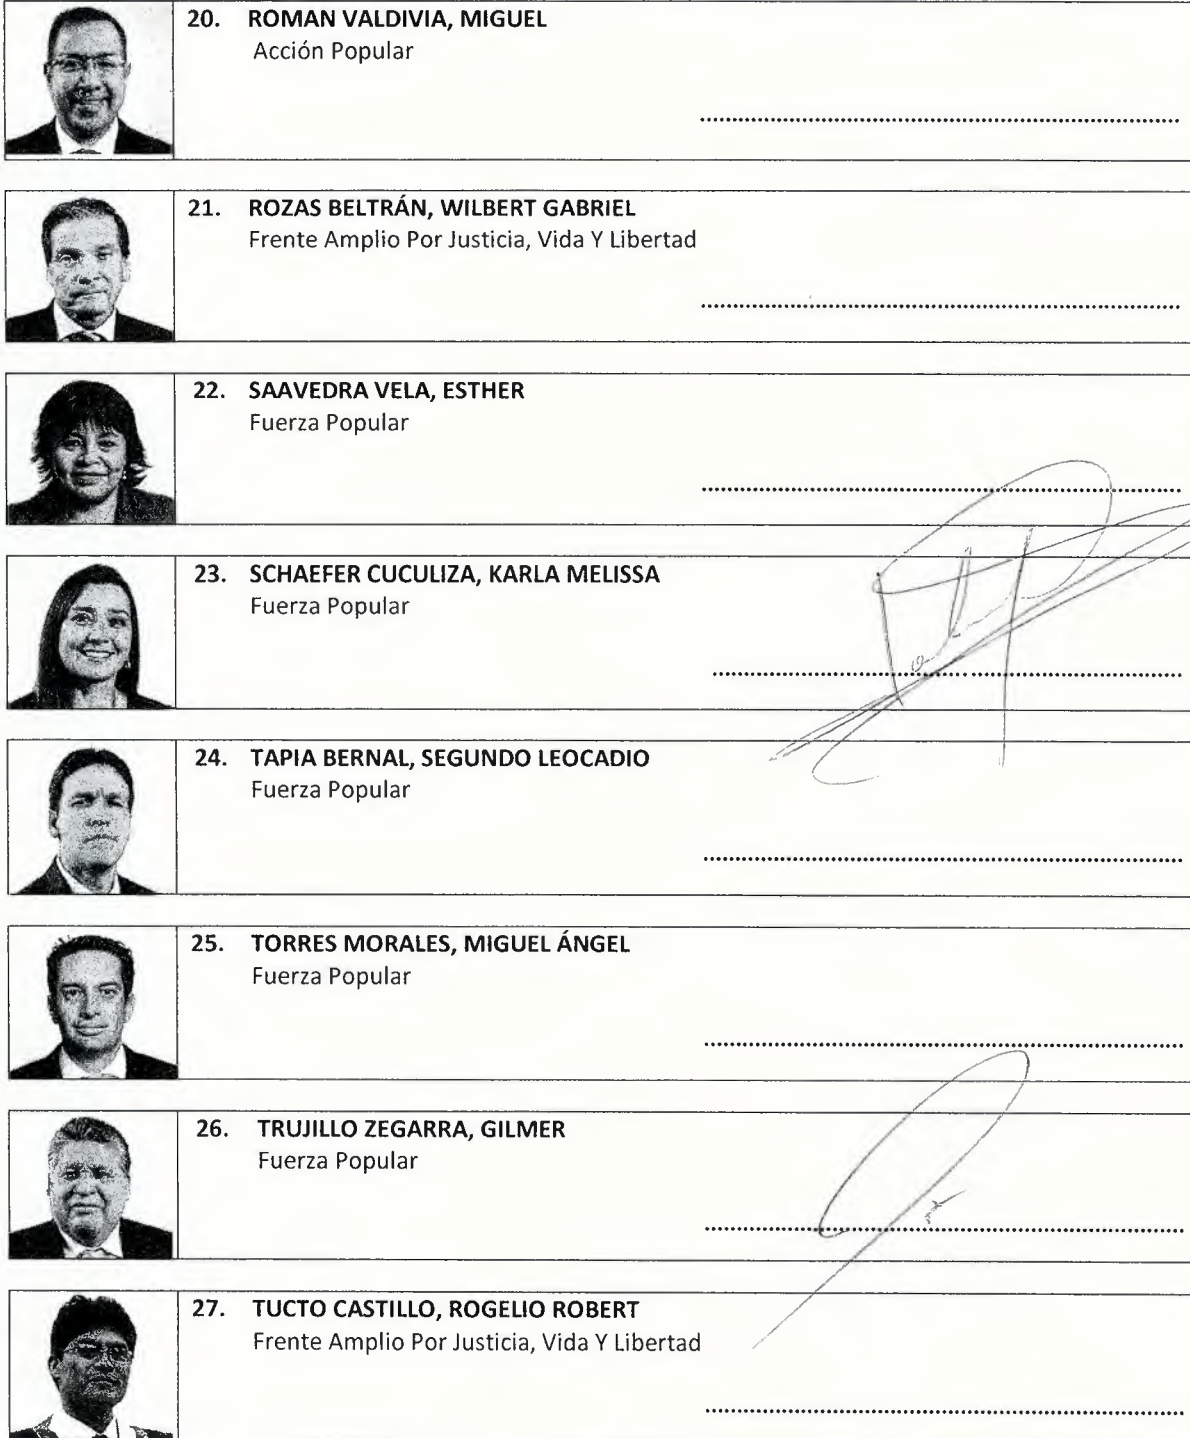 20. ROMAN VALDIVIA, MIGUEL
Acción Popular
21. ROZAS BELTRÁN, WILBERT GABRIEL
Frente Amplio Por Justicia, Vida Y Libertad
22. SAAVEDRA VELA, ESTHER
Fuerza Popular
23. SCHAEFER CUCULIZA, KARLA MELISSA
Fuerza Popular
24. TAPIA BERNAL, SEGUNDO LEOCADIO
Fuerza Popular
25. TORRES MORALES, MIGUEL ÁNGEL
Fuerza Popular
26. TRUJILLO ZEGARRA, GILMER
Fuerza Popular
27. TUCTO CASTILLO, ROGELIO ROBERT
Frente Amplio Por Justicia, Vida Y Libertad